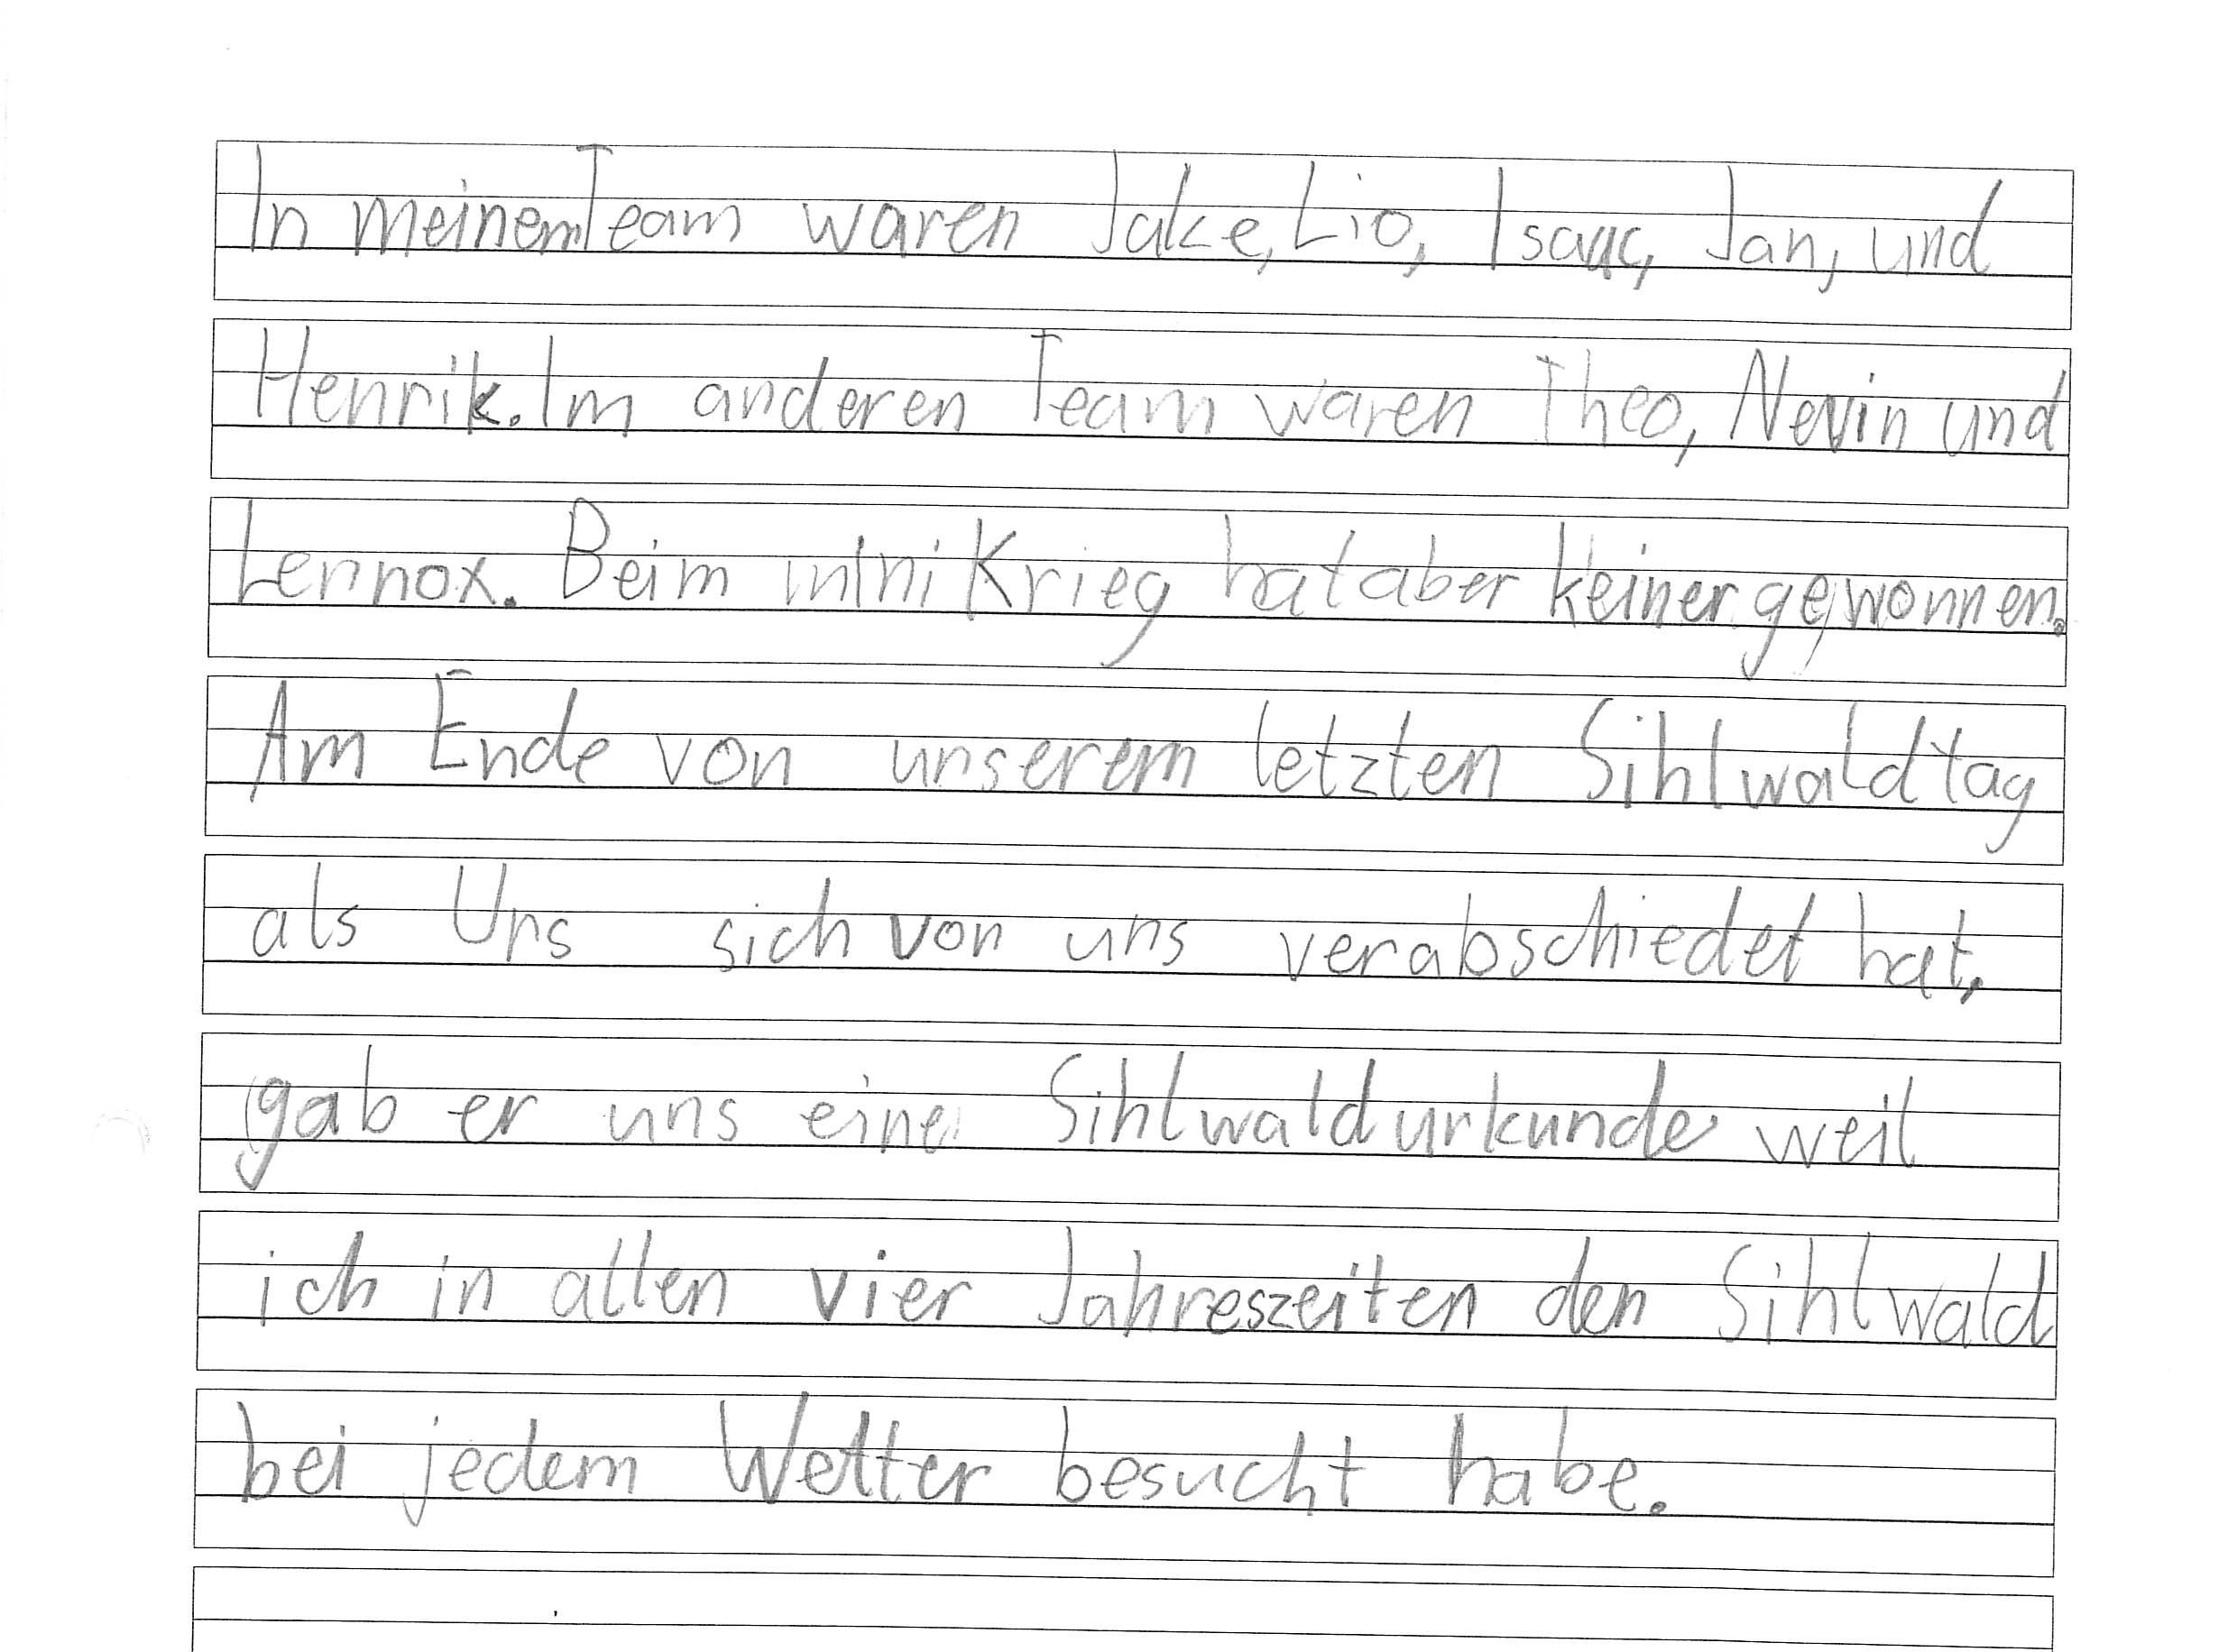 In meinem Team waren Jake, Lio, Isaac, Jan, und
Henrik. Im anderen Team waren Theo, Nevin und
Lennox. Beim mini Krieg hat aber keiner gewonnen.
Am Ende von unserem letzten Sihlwaldtag
als Urs sich von uns verabschiedet hat,
gab er uns eine Sihlwaldurkunde weil
ich in allen vier Jahreszeiten den Sihlwald
bei jedem Wetter besucht habe.